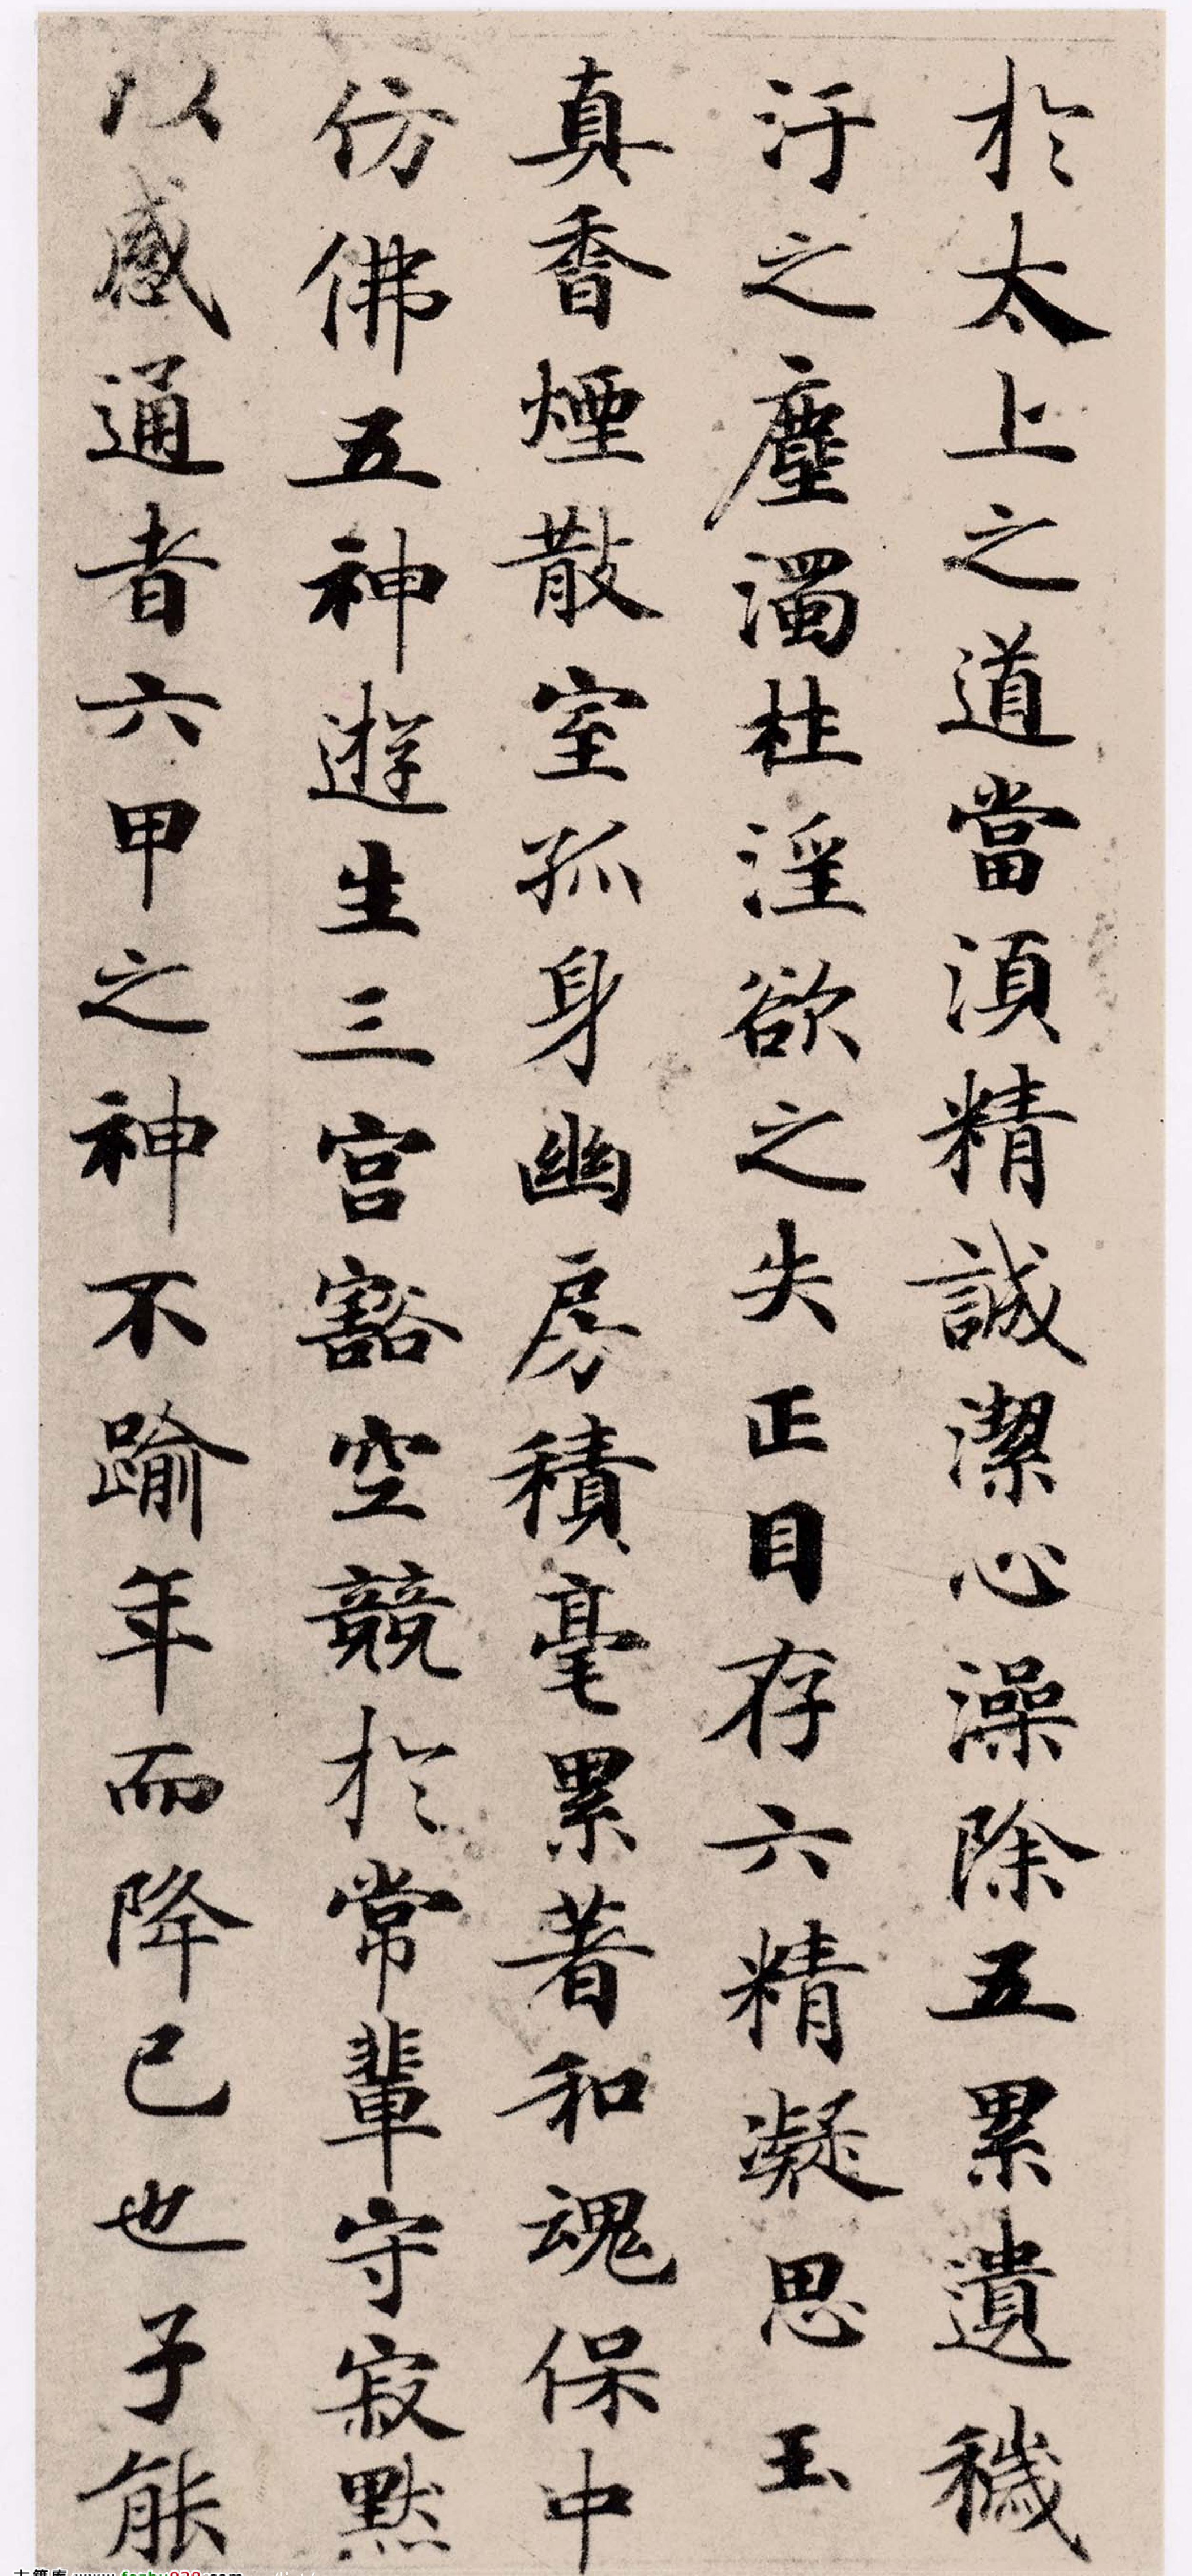 於太上之道當須精誠潔心澡除五累遺穢
汙之塵濁杜淫欲之失正目存六精凝思玉
真香煙散室孤身幽房積毫累著和魂保中
仿佛五神遊生三宮豁空競於常輩守寂默
以感通者六甲之神不踰年而降已也子能